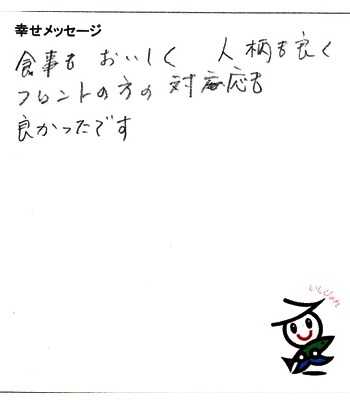 幸せメッセージ
食事も おいしく 人柄も良く
フロントの方の対応も
良かったです
いしじまん